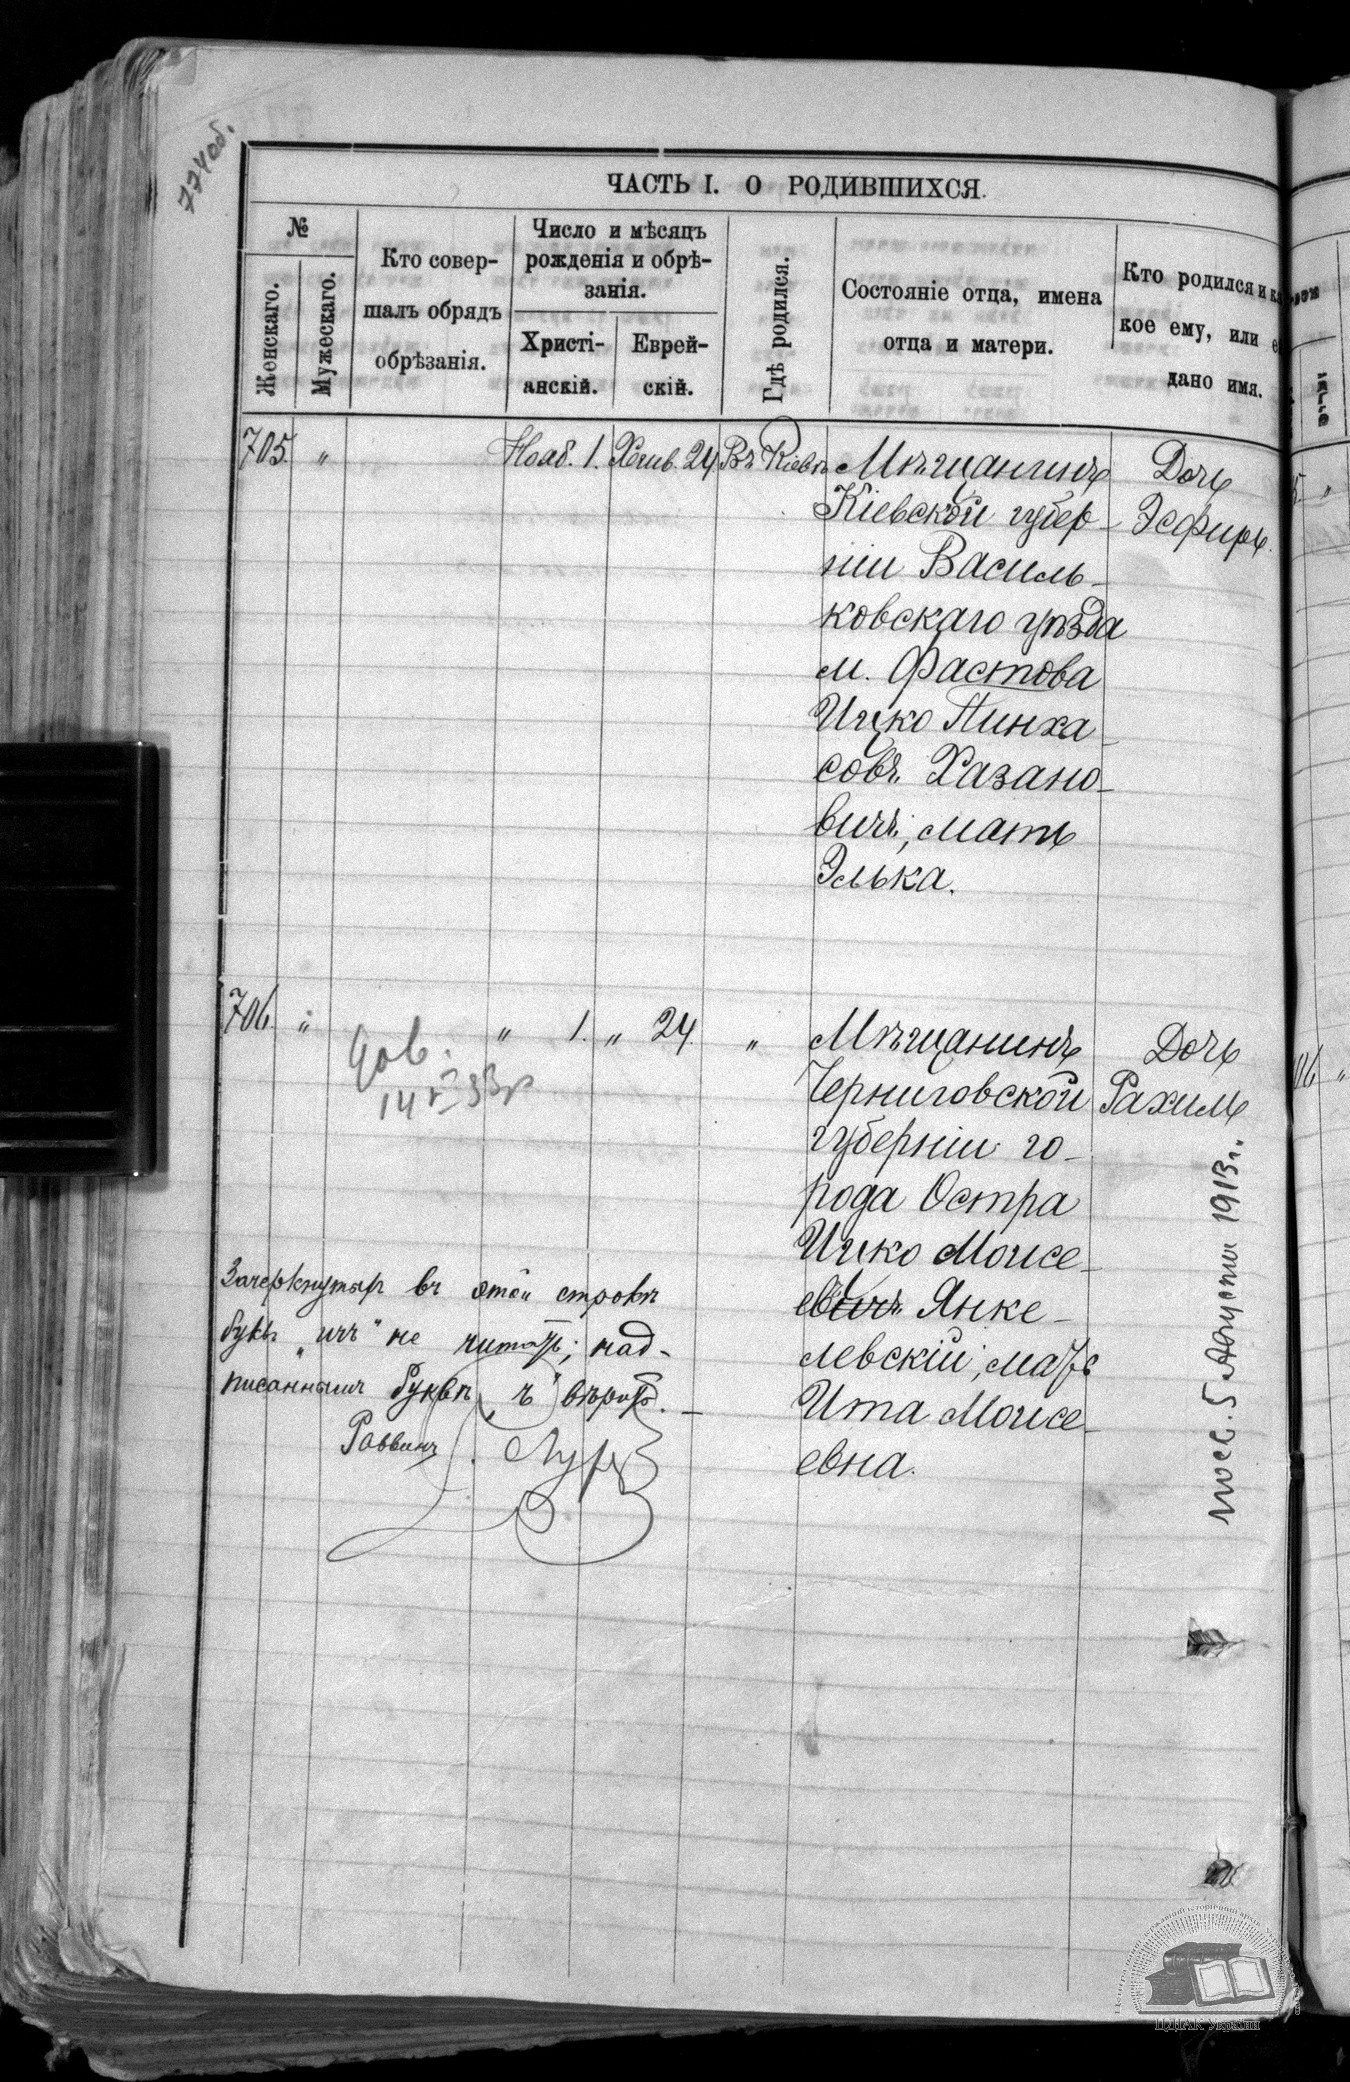 774об.
ЧАСТЬ I. О РОДИВШИХСЯ.
№
Женскаго.
Мужескаго.
Кто совер-
шалъ обрядъ
обрѣзанія.
Число и мѣсяцъ
рожденія и обрѣ-
занія.
Христі-
анскій.
Еврей-
скій.
Гдѣ родился.
Состояніе отца, имена
отца и матери.
Кто родился и ка-
кое ему, или ей
дано имя.
705. „ Нояб. 1. Хешв. 24 Въ Кіевѣ Мѣщанинъ Дочь
Кіевской губер- Эсфирь.
ніи Василь-
ковскаго уѣзда
м. Фастова
Ицко Пинха-
совъ Хазано-
вичъ, мать
Элька.
706 „ „ 1. „ 24 „ Мѣщанинъ Дочь
Черниговской Рахиль
губерніи го-
рода Остра
Ицко Моисе-
евичъ Янке-
левскій, мать
Ита Моисе-
евна.
14 V 33г
Зачеркнутыя въ этой строкѣ
буквы „ичъ" не читать; над-
писанными буквѣ „ъ" вѣрить.
Раввинъ
5 Августа 1913 г.
ЦДІАК України